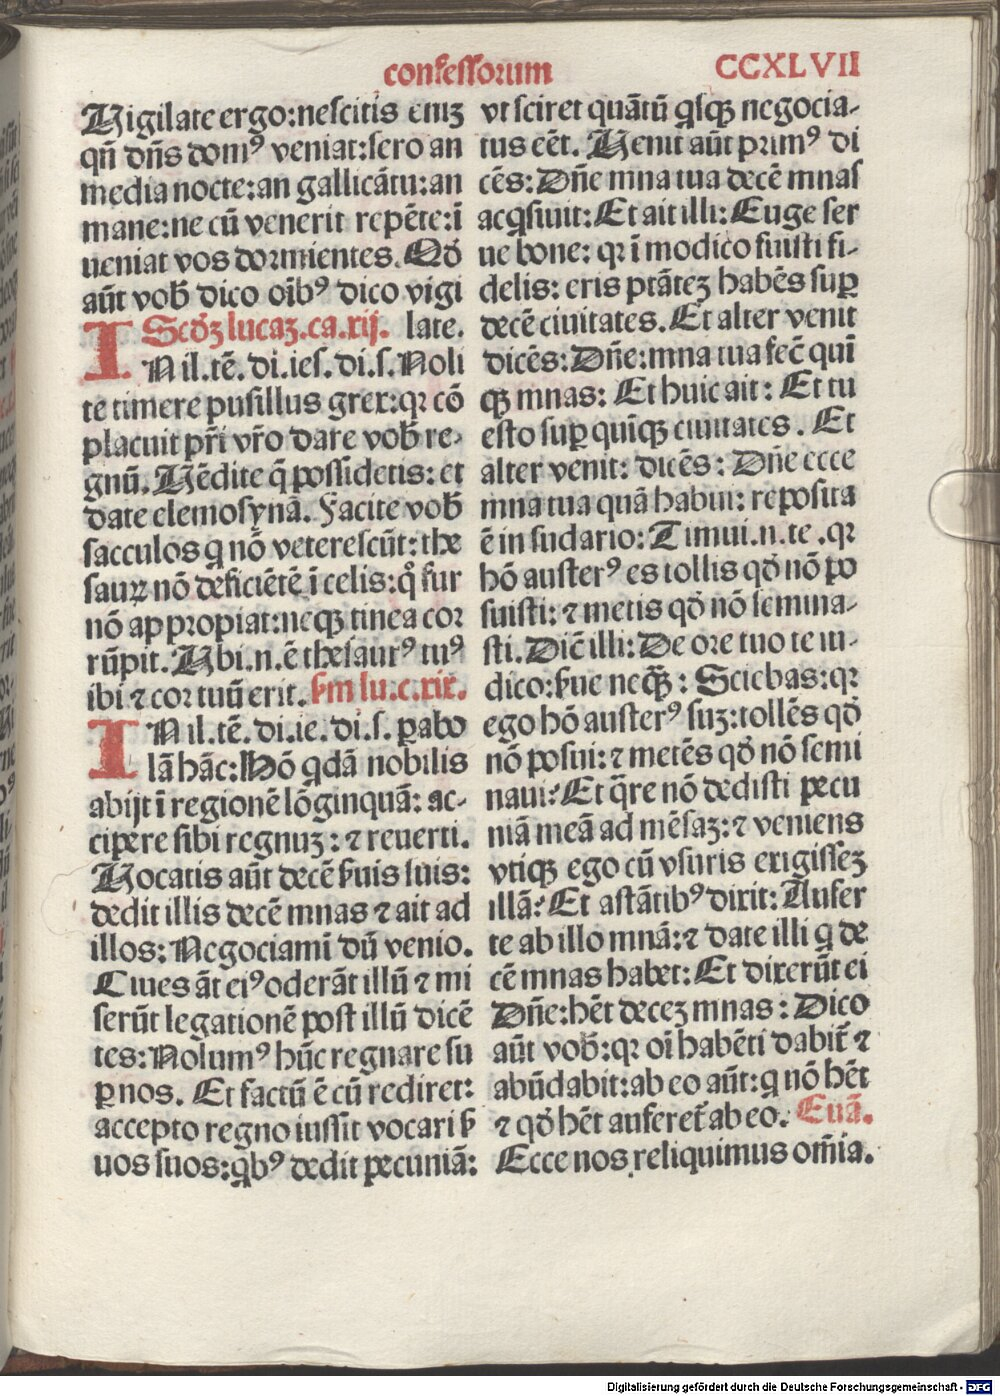 confessorum CCXLVII
Uigilate ergo:nescitis eniʒ
qñ dñs domꝰ veniat:sero an
media nocte:an gallicātu:an
mane:ne cū venerit repēte:ī
ueniat vos dormientes. Qđ
aūt vob̄ dico oībꝰ dico vigi
Scđʒ lucaʒ.ca.xij. late.
INil.tē.di.ies.di.s.Noli
te timere pusillus grex:qꝛ cō
placuit pr̄i vr̄o dare vob̄ re-
gnū. Uēdite q̄ possidetis: et
date elemosynā. Facite vob̄
sacculos q nō veterescūt: the
sauꝝ nō deficiētē ī celis:qͦ fur
nō appropiat:neqꝫ tinea cor
rūpit. Ubi.n.ē thesaurꝰ tuꝰ
ibi ⁊ cor tuū erit. k̄m lu.c.xix.
INil.tē.di.ie.di.s. ꝑabo
lā hāc: Hō qdā nobilis
abijt ī regionē lōginquā: ac-
cipere sibi regnuʒ: ⁊ reuerti.
Uocatis aūt decē ẜuis suis:
dedit illis decē mnas ⁊ ait ad
illos: Negociamī dū venio.
Ciues āt eiꝰ oderāt illū ⁊ mi
serūt legationē post illū dicē
tes: Nolumꝰ hūc regnare su
ꝑ nos. Et factū ē cū rediret:
accepto regno iussit vocari ẜ
uos suos:qbꝰ dedit pecuniā:
vt sciret quātū qsqꝫ negocia-
tus eēt. Uenit aūt primꝰ di
cēs: Dñe mna tua decē mnas
acqsiuit: Et ait illi: Euge ser
ue bone: qꝛ ī modico fuisti fi-
delis: eris ptāteʒ habēs suꝑ
decē ciuitates. Et alter venit
dicēs: Dñe: mna tua fec̄ quī
qꝫ mnas: Et huic ait: Et tu
esto suꝑ quīqꝫ ciuitates. Et
alter venit: dicēs: Dñe ecce
mna tua quā habui: reposita
ē in sudario: Timui.n.te.qꝛ
hō austerꝰ es tollis qđ nō po
suisti: ⁊ metis qđ nō semina-
sti. Dic̄ illi: De ore tuo te iu-
dico: ẜue neqꝫ̄: Sciebas: qꝛ
ego hō austerꝰ suʒ: tollēs qđ
nō posui: ⁊ metēs qđ nō semi
naui: Et q̄re nō dedisti pecu
niā meā ad mēsaʒ: ⁊ veniens
vtiqꝫ ego cū vsuris exigisseʒ
illā: Et astātibꝰ dixit: Aufer
te ab illo mnā: ⁊ date illi q de
cē mnas habet: Et dixerūt ei
Dñe: hēt deceʒ mnas: Dico
aūt vob̄: qꝛ oī habēti dabit̄ ⁊
abūdabit: ab eo aūt: q nō hēt
⁊ qđ hēt auferet̄ ab eo. Euā.
Ecce nos reliquimus om̄ia.
Digitalisierung gefördert durch die Deutsche Forschungsgemeinschaft - DFG